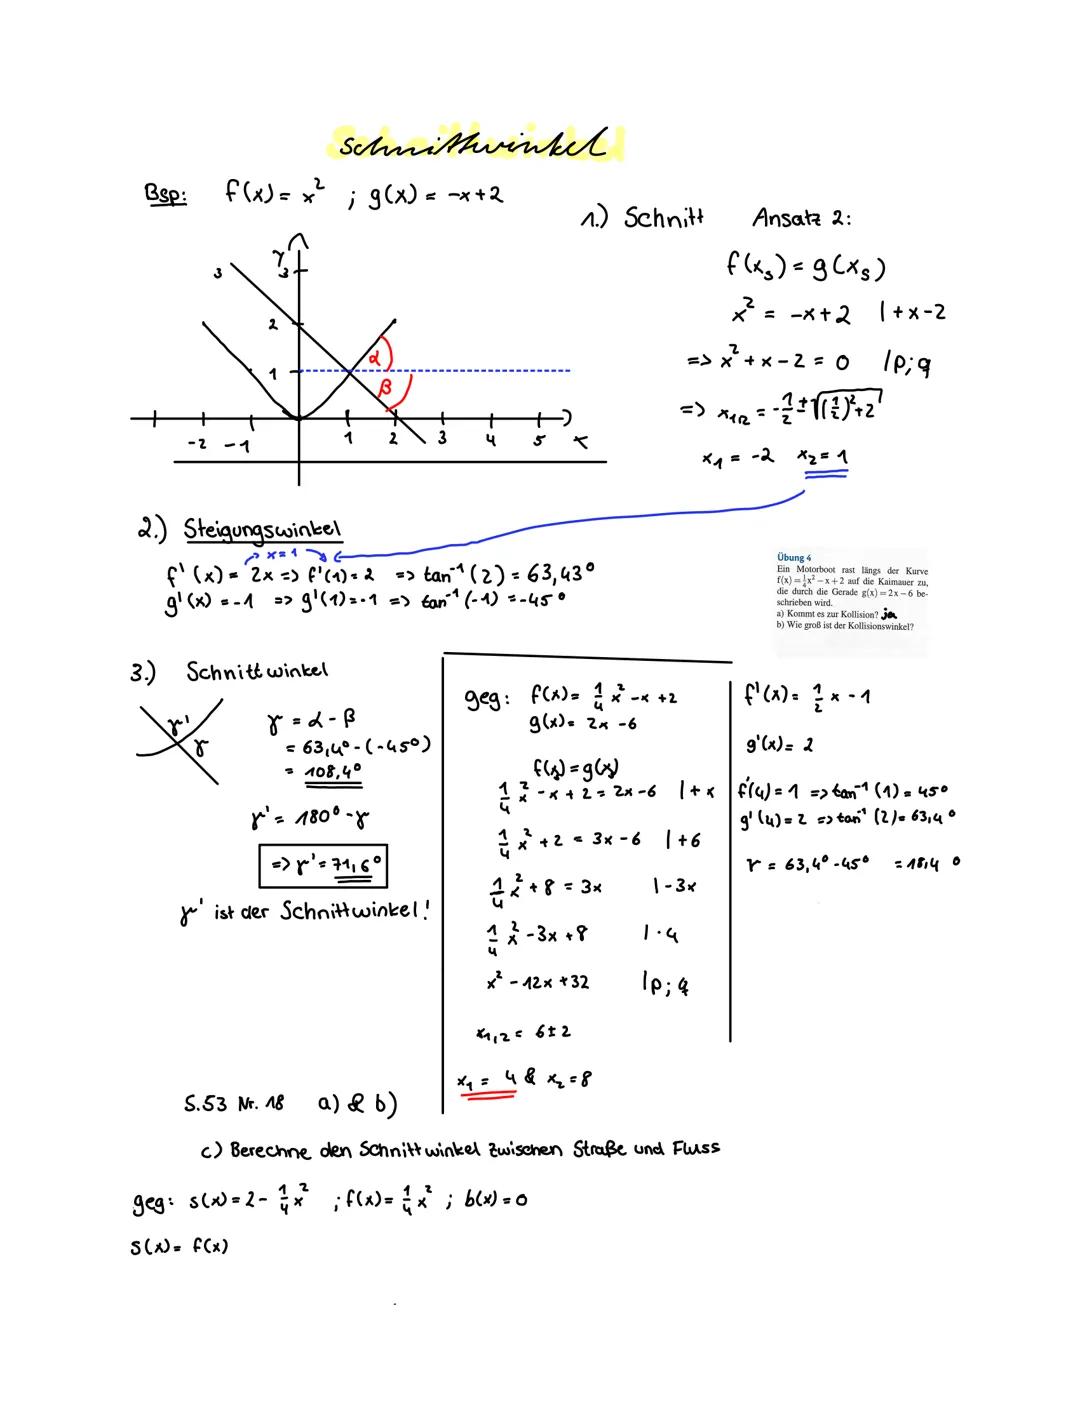 Schnittwinkel
Bsp: f(x) = x² ; g(x) = -x+2
1.) Schnitt Ansatz 2:
f(x_s) = g(x_s)
x² = -x+2 |+x-2
=> x²+x-2 = 0 |p;q
=> x_1/2 = -1/2 ± √((1/2)²+2)
x₁ = -2 x₂ = 1
y
3 3
2
1
α
β
-2 -1 1 2 3 4 5 x
2.) Steigungswinkel
x=1
f'(x) = 2x => f'(1) = 2 => tan⁻¹(2) = 63,43°
g'(x) = -1 => g'(1) = -1 => tan⁻¹(-1) = -45°
Übung 4
Ein Motorboot rast längs der Kurve
f(x) = ¼x² − x + 2 auf die Kaimauer zu,
die durch die Gerade g(x) = 2x − 6 be-
schrieben wird.
a) Kommt es zur Kollision? ja
b) Wie groß ist der Kollisionswinkel?
3.) Schnittwinkel
γ'
γ
γ = α - β
= 63,4° - (-45°)
= 108,4°
γ' = 180° - γ
=> γ' = 71,6°
γ' ist der Schnittwinkel!
geg: f(x) = 1/4 x² - x + 2
g(x) = 2x - 6
f(x) = g(x)
1/4 x² - x + 2 = 2x - 6 |+x
1/4 x² + 2 = 3x - 6 |+6
1/4 x² + 8 = 3x |-3x
1/4 x² - 3x + 8 |·4
x² - 12x + 32 |p;q
x_1,2 = 6 ± 2
x₁ = 4 & x₂ = 8
f'(x) = 1/2 x - 1
g'(x) = 2
f'(4) = 1 => tan⁻¹(1) = 45°
g'(4) = 2 => tan⁻¹(2) = 63,4°
γ = 63,4° - 45° = 18,4°
S.53 Nr. 18 a) & b)
c) Berechne den Schnittwinkel zwischen Straße und Fluss
geg: s(x) = 2 - 1/4 x² ; f(x) = 1/4 x² ; b(x) = 0
s(x) = f(x)